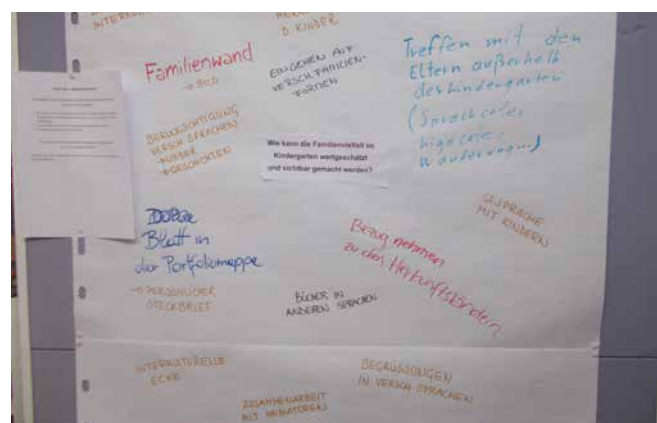 D. KINDER
Familienwand
→ BILD
EINGEHEN AUF
VERSCH. FAMILIEN-
FORMEN
Treffen mit den
Eltern außerhalb
des Kindergarten
(Sprachcafe,
Wanderung...)
BERÜCKSICHTIGUNG
VERSCH. SPRACHEN
→ LIEDER
→ GESCHICHTEN
Wie kann die Familienvielfalt im
Kindergarten wertgeschätzt
und sichtbar gemacht werden?
GESPRÄCHE
MIT KINDERN
Blatt in
der Portfoliomappe
→ PERSÖNLICHER
STECKBRIEF
Bezug nehmen
zu den Herkunftsländern
BÜCHER IN
ANDEREN SPRACHEN
INTERKULTURELLE
ECKE
BEGRÜSSUNGEN
IN VERSCH. SPRACHEN
ZUSAMMENARBEIT
MIT MEDIATOREN